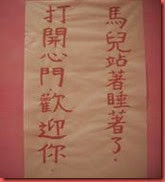 馬兒站著睡著了.
打開心門.歡迎你.